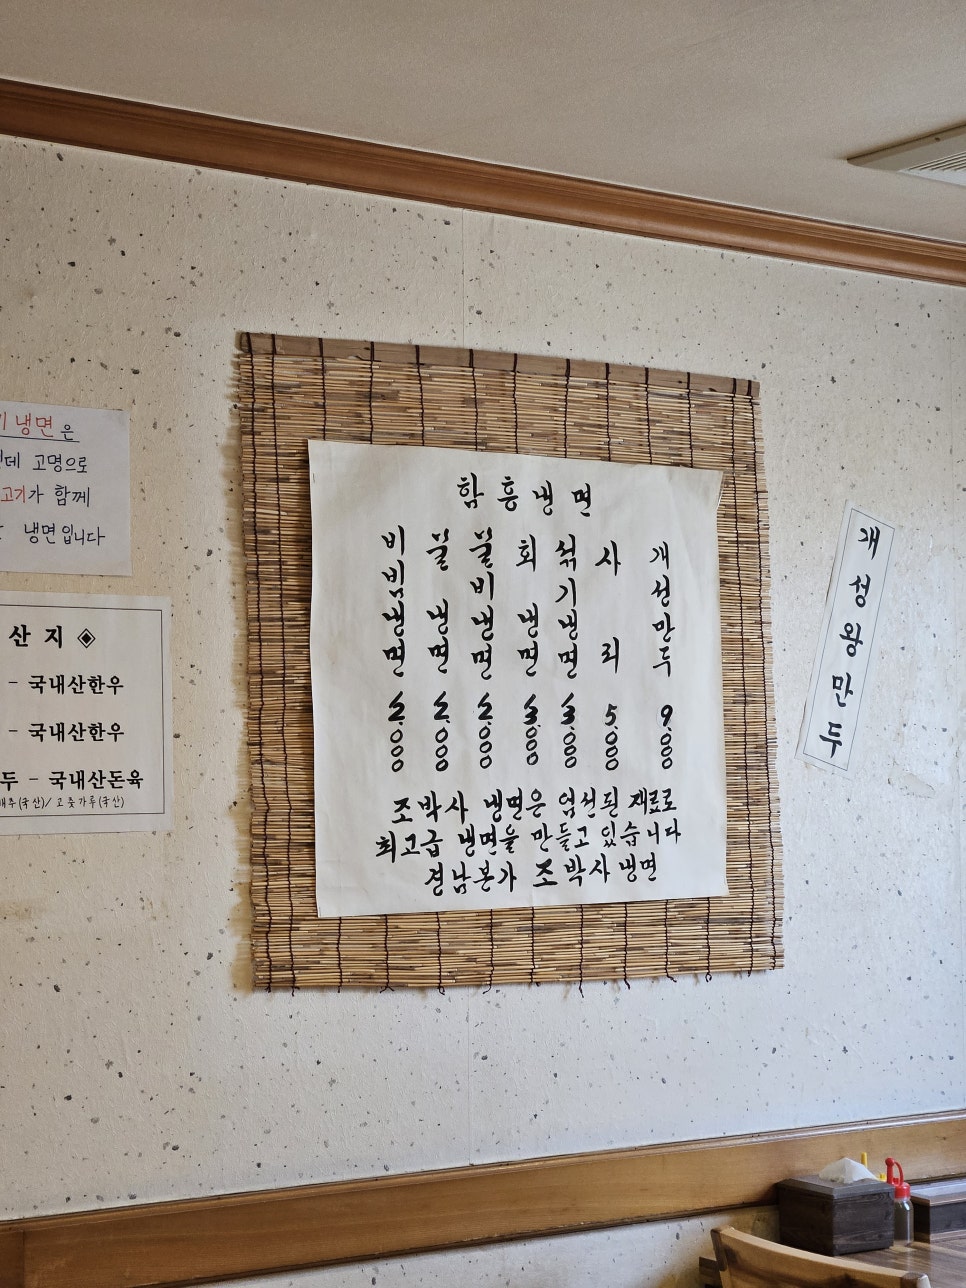 냉면은
고명으로
고기가 함께
냉면입니다
산 지 ◈
- 국내산한우
- 국내산한우
두 - 국내산돈육
배추(국산)/고춧가루(국산)
함흥냉면
비빔냉면 12,000
물냉면 12,000
물비냉면 12,000
회냉면 13,000
섞기냉면 13,000
사리 5,000
개성만두 9,000
조박사 냉면은 엄선된 재료로
최고급 냉면을 만들고 있습니다
경남본가 조박사냉면
개성왕만두